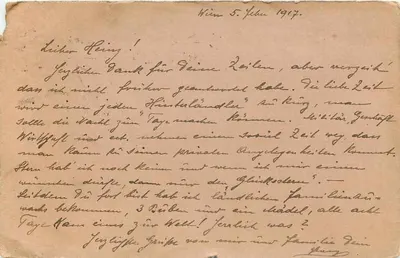 Wien 5. Feber 1917.
Lieber Heinz!
Herzlichen Dank für Deine Zeilen, aber verzeih'
dass ich nicht früher geantwortet habe. Die liebe Zeit
wird einem jeden "Hinterländler" zu kurz, man
sollte die Nacht zum Tage machen können. Militär, Geschäft
Wirtschaft nehmen einem soviel Zeit weg, dass
man kaum zu seinen privaten Angelegenheiten kommt.
Stern hab' ich noch keinen und wenn ich mir einen
wünschen dürfte, dann nur den "Glücksstern". –
Seitdem Du fort bist hab ich ländlichen Familienzu-
wachs bekommen, 3 Buben und ein Mädel, alle acht
Tage kam eins zur Welt! Herzlich was?
Herzlichste Grüße von mir und Familie Dein